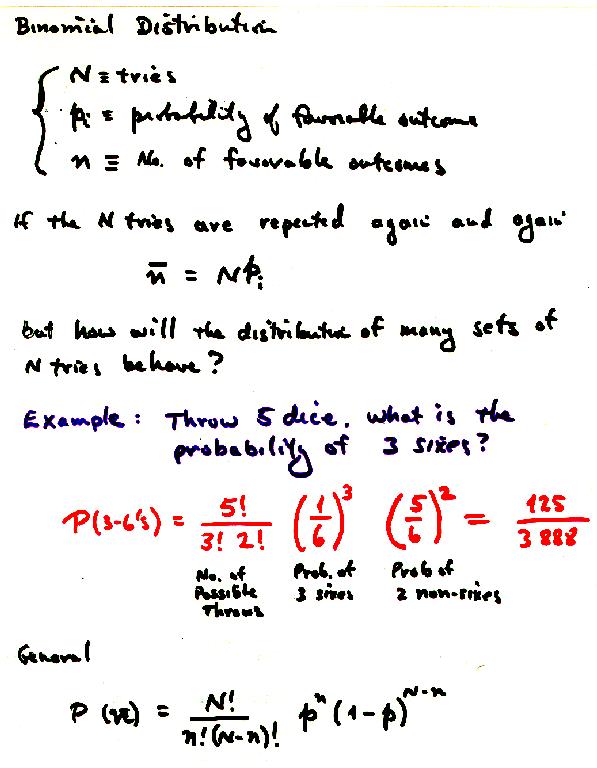 Binomial Distribution
N ≡ tries
pᵢ ≡ probability of favorable outcome
n ≡ No. of favorable outcomes
if the N tries are repeated again and again
n̅ = Npᵢ
but how will the distribution of many sets of
N tries behave?
Example: Throw 5 dice, what is the
probability of 3 sixes?
P(3-6's) = 5!/(3! 2!) (1/6)³ (5/6)² = 125/3888
No. of Possible Throws Prob. of 3 sixes Prob of 2 non-sixes
General
P(n) = N!/(n!(N-n)!) pⁿ(1-p)ᴺ⁻ⁿ